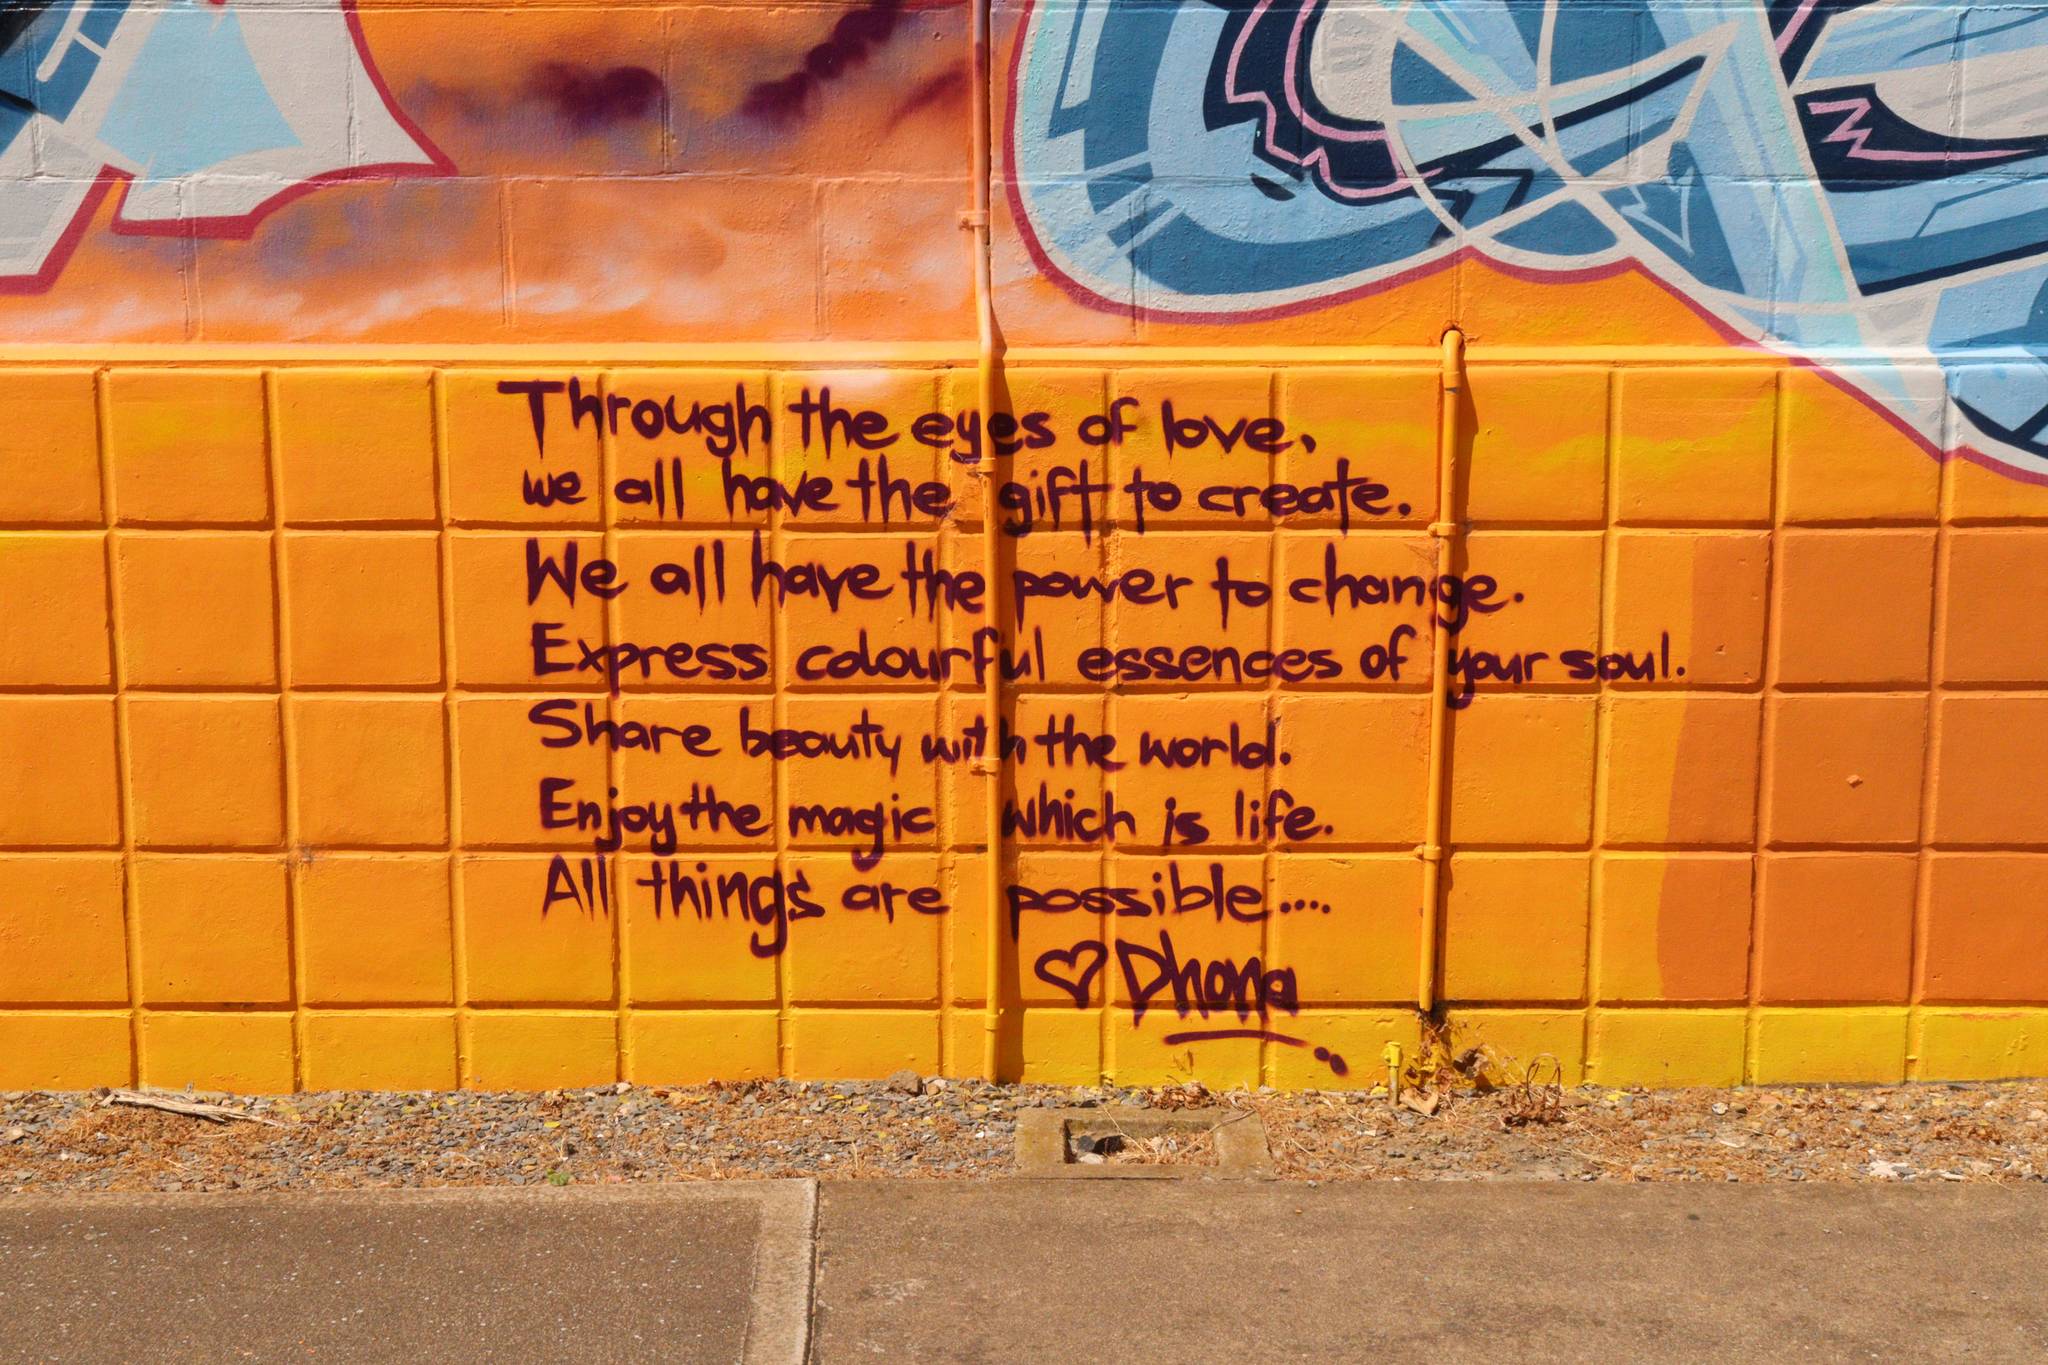 Through the eyes of love,
we all have the gift to create.
We all have the power to change.
Express colourful essences of your soul.
Share beauty with the world.
Enjoy the magic which is life.
All things are possible....
♡ Dhana